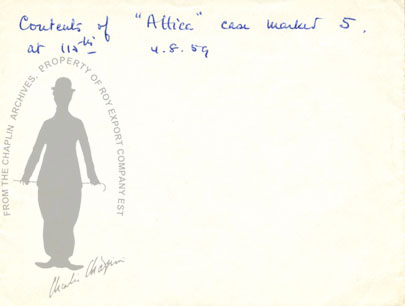 Contents of "Attica" case marked 5.
at 4.8.59
FROM THE CHAPLIN ARCHIVES, PROPERTY OF ROY EXPORT COMPANY EST
Charles Chaplin